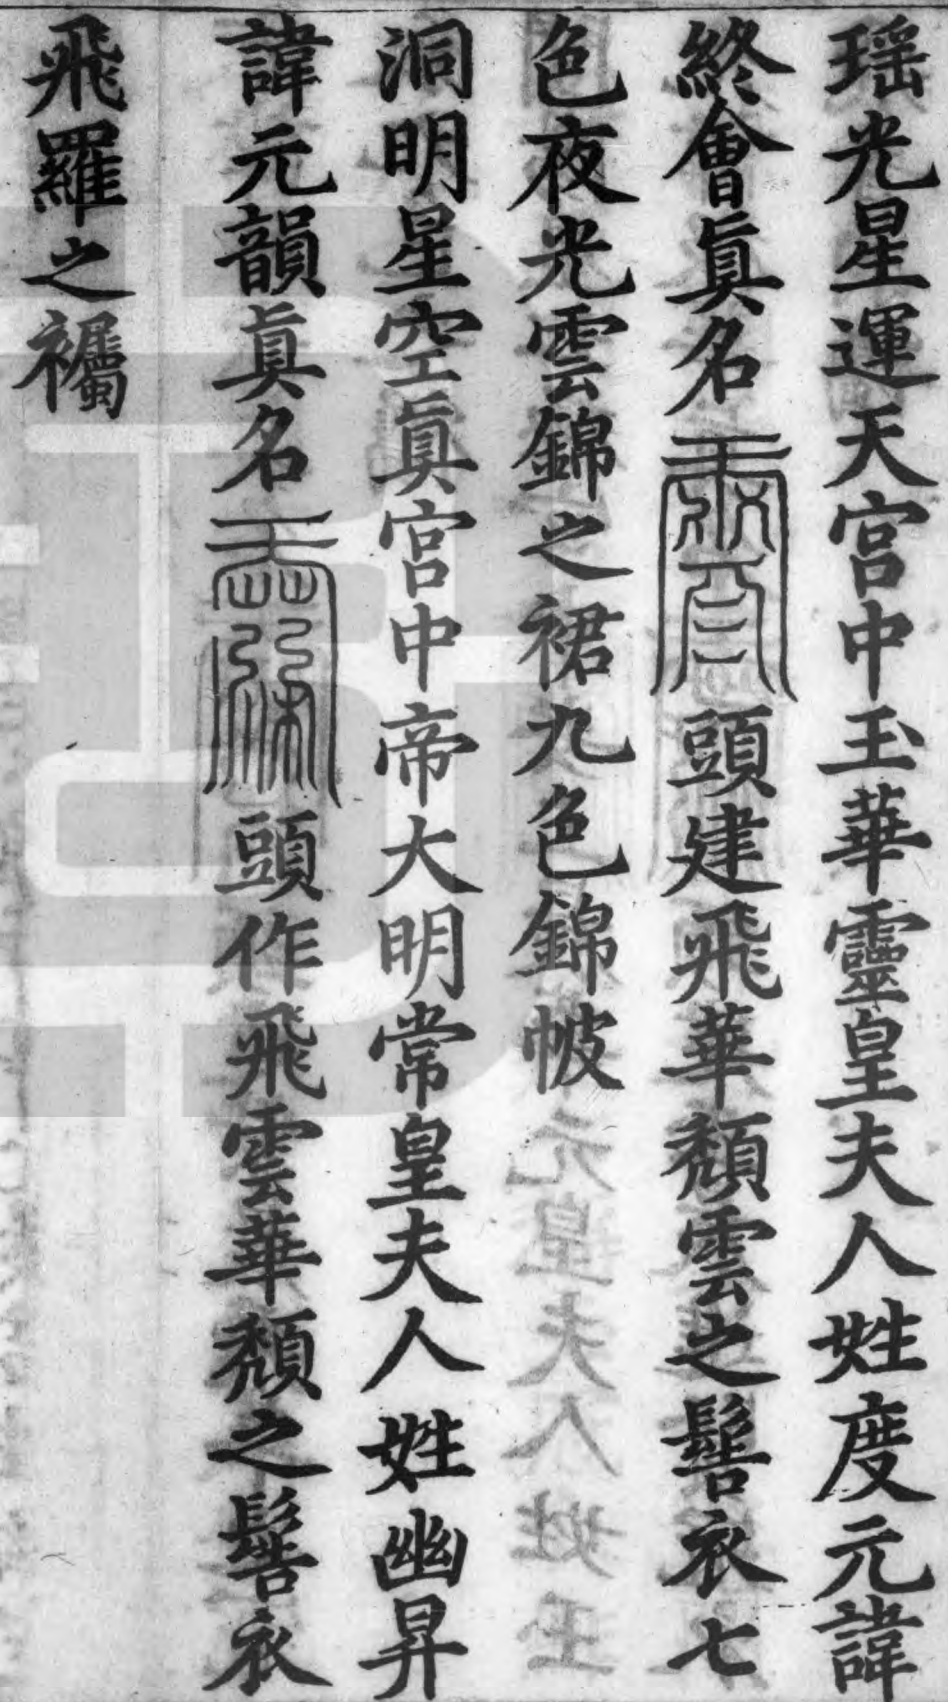 瑶光星運天宮中玉華靈皇夫人姓度元諱
終會眞名頭建飛華頹雲之髻衣七
色夜光雲錦之裙九色錦帔
洞明星空眞宮中帝大明常皇夫人姓幽昇
諱元韻眞名頭作飛雲華頹之髻衣
飛羅之襡